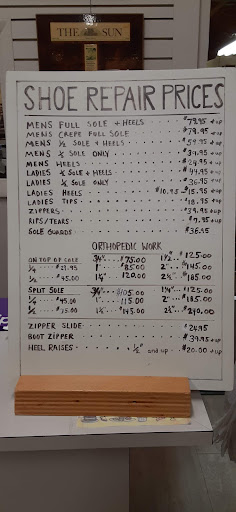 THE SUN
SHOE REPAIR PRICES
MENS FULL SOLE + HEELS $79.95 + up
MENS CREPE FULL SOLE $79.95 + up
MENS ½ SOLE + HEELS $59.95 + up
MENS ½ SOLE ONLY $39.95 + up
MENS HEELS $24.95 + up
LADIES ½ SOLE + HEELS $44.95 + up
LADIES ½ SOLE ONLY $36.95 + up
LADIES HEELS $10.95 - $15.95 + up
LADIES TIPS $18.95 + up
ZIPPERS $39.95 + up
RIPS/TEARS $7.95 + up
SOLE GUARDS $36.95
ORTHOPEDIC WORK
ON TOP OF SOLE ¾" $75.00 $125.00
¼" $21.95 1" $85.00 2" $145.00
½" $45.00 $120.00 2½" $185.00
SPLIT SOLE ¾" $105.00 $125.00
¼" $45.00 1" $115.00 2" $185.00
½" $75.00 $145.00 2½" $240.00
ZIPPER SLIDE $24.95
BOOT ZIPPER $39.95 + up
HEEL RAISES ½" and up $20.00 + up